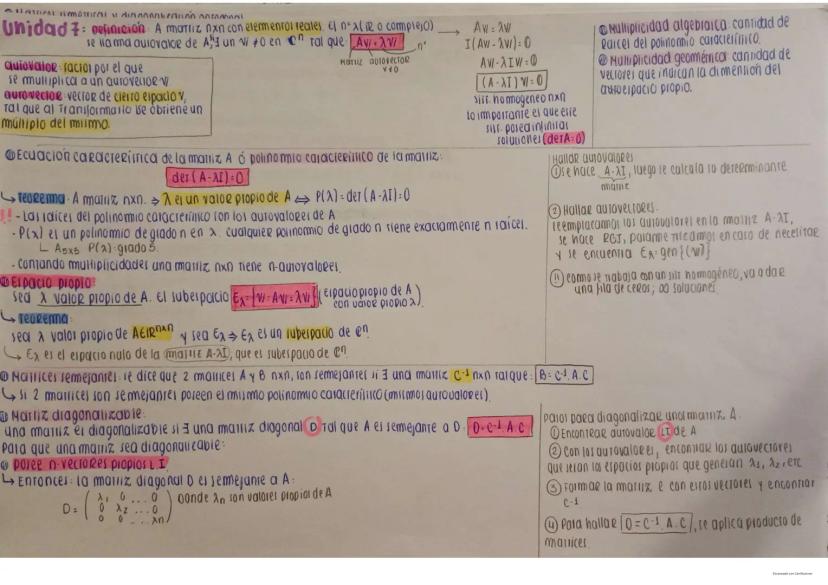 Unidad 7: Definición: A matriz nxn con elementos reales. El n° λ (R o complejo)
se llama autovalor de A, si ∃ un v ≠ 0 en ℂⁿ tal que Av = λv
matriz autovector n°
v≠0
autovalor: factor por el que
se multiplica a un autovector v
autovector: vector de cierto espacio v,
tal que al transformarlo se obtiene un
múltiplo del mismo.
Av = λv
I(Av - λv) = 0
Av - λIv = 0
(A - λI) v = 0
sist. homogéneo nxn
lo importante es que este
sist. posea infinitas
soluciones (det A = 0)
① Multiplicidad algebraica: cantidad de
raíces del polinomio característico.
② Multiplicidad geométrica: cantidad de
vectores que indican la dimensión del
autoespacio propio.
Ecuación característica de la matriz A ó polinomio característico de la matriz:
det (A - λI) = 0
↳ Teorema: A matriz nxn. ⇒ λ es un valor propio de A ⇔ P(λ) = det (A - λI) = 0
!! - Las raíces del polinomio característico son los autovalores de A
- P(λ) es un polinomio de grado n en λ. cualquier polinomio de grado n tiene exactamente n raíces.
↳ A5x5 P(λ) = grado 5.
- contando multiplicidades una matriz nxn tiene n-autovalores.
Espacio propio:
sea λ valor propio de A. El subespacio Eλ = {v = Av = λv} (espacio propio de A
con valor propio λ)
↳ Teorema:
sea λ valor propio de A∈ℝⁿˣⁿ y sea Eλ ⇒ Eλ es un subespacio de ℂⁿ
↳ Eλ es el espacio nulo de la matriz A-λI, que es subespacio de ℂⁿ.
Hallar autovalores
① se hace A-λI, luego se calcula su determinante
matriz
② Hallar autovectores.
reemplazamos los autovalores en la matriz A-λI,
y se encuentra Eλ = gen{(v)}
como se trabaja con un sist homogéneo, va a dar
una fila de ceros; ∞ soluciones
Matrices semejantes: se dice que 2 matrices A y B nxn, son semejantes si ∃ una matriz C⁻¹ nxn tal que: B = C⁻¹.A.C
↳ Si 2 matrices son semejantes poseen el mismo polinomio característico (mismos autovalores).
Matriz diagonalizable:
una matriz es diagonalizable si ∃ una matriz diagonal D tal que A es semejante a D: D = C⁻¹.A.C
Para que una matriz sea diagonalizable:
posee n-vectores propios L.I
↳ Entonces: la matriz diagonal D es semejante a A:
D = ( λ₁ 0 ... 0
0 λ₂ ... 0
0 0 ... λn ) donde λn son valores propios de A
Pasos para diagonalizar una matriz A.
① Encontrar autovalor LI de A
② Con los autovalores, encontrar los autovectores
que serán los espacios propios que generan λ₁, λ₂, etc
③ Formar la matriz C con estos vectores y encontrar
C⁻¹
④ Para hallar D = C⁻¹.A.C, se aplica producto de
matrices.